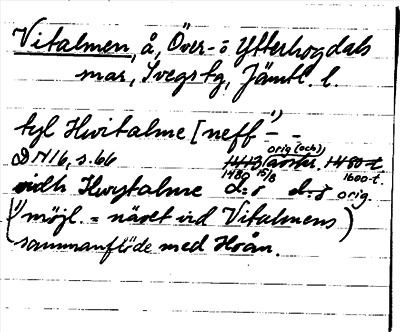 Vitalmen, å, Över- o Ytterhogdals
snar, Svegs tg, Jämtl. l.
tyl Hwitalme [neff¹) - -
orig (och)
DN16, s. 66 1413 (avskr. 1480-t.
1480 15/8 1600-t.
widh Hwytalme d:o d:o orig.
(¹) möjl. = näset vid Vitalmens)
sammanflöde med Hoån.